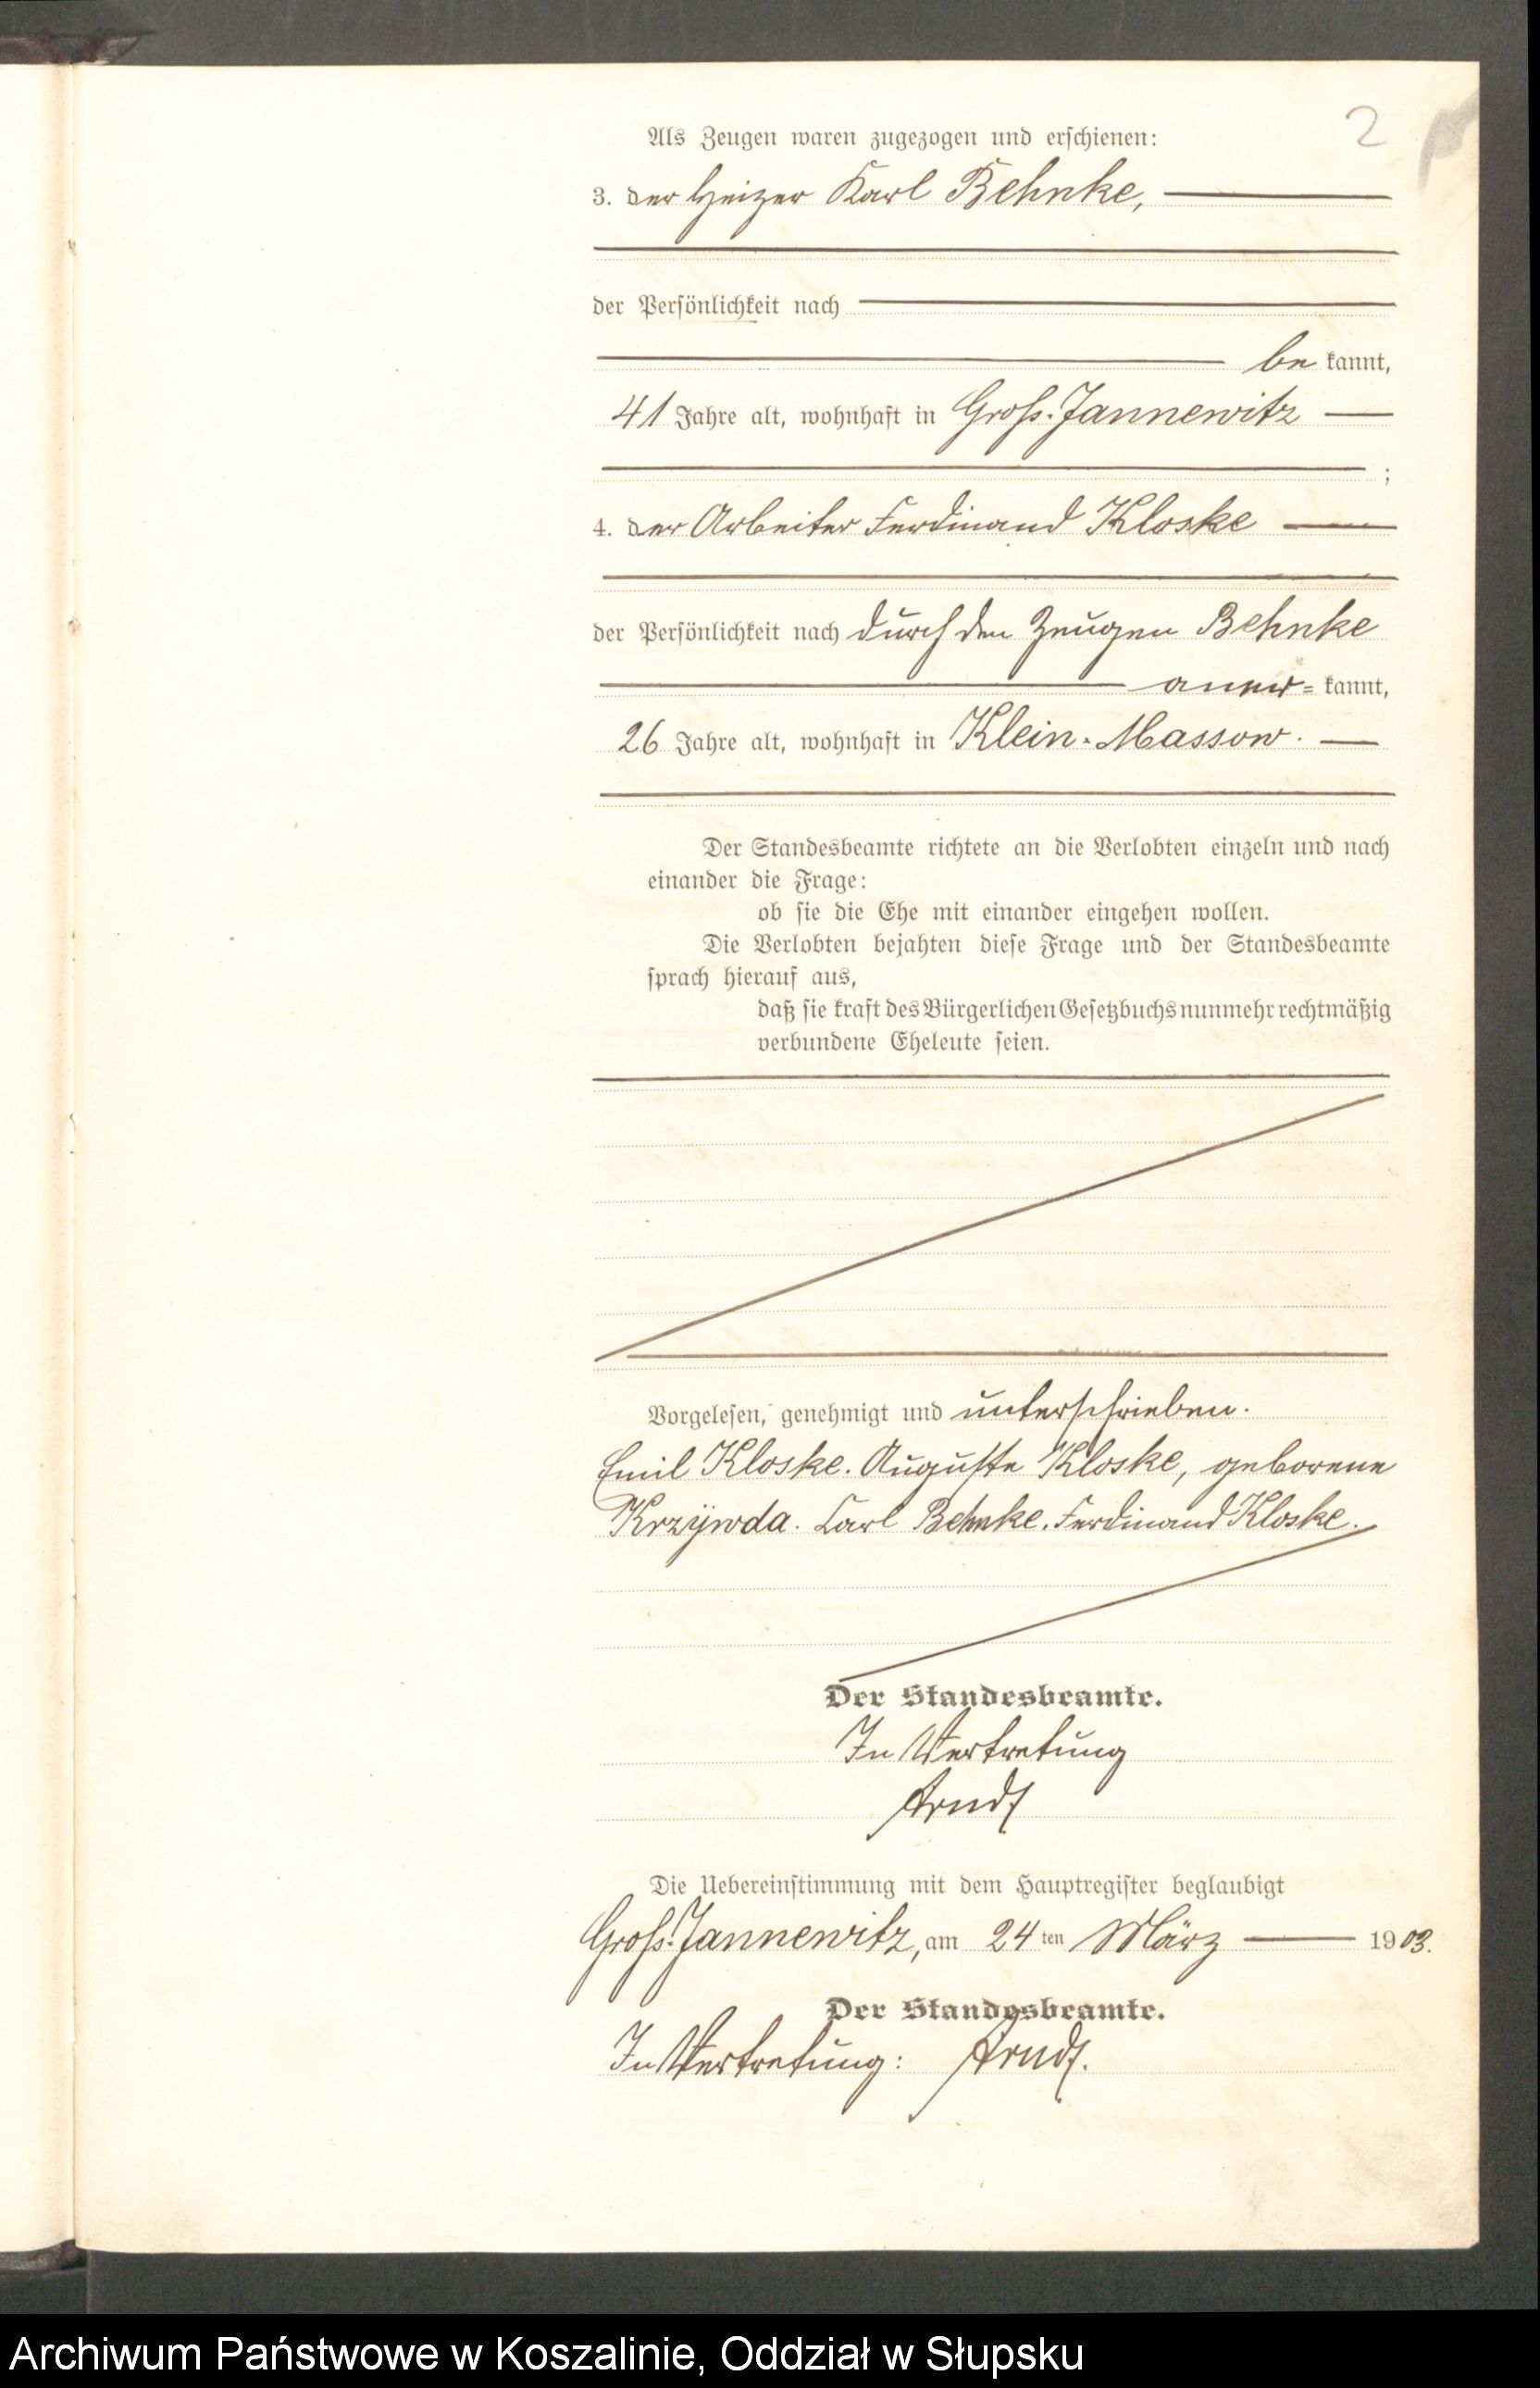 2
Als Zeugen waren zugezogen und erschienen:
3. der Heizer Karl Behnke,
der Persönlichkeit nach
be kannt,
41 Jahre alt, wohnhaft in Groß-Jannewitz
;
4. der Arbeiter Ferdinand Kloske
der Persönlichkeit nach durch den Zeugen Behnke
aner= kannt,
26 Jahre alt, wohnhaft in Klein-Massow.
Der Standesbeamte richtete an die Verlobten einzeln und nach
einander die Frage:
ob sie die Ehe mit einander eingehen wollen.
Die Verlobten bejahten diese Frage und der Standesbeamte
sprach hierauf aus,
daß sie kraft des Bürgerlichen Gesetzbuchs nunmehr rechtmäßig
verbundene Eheleute seien.
Vorgelesen, genehmigt und unterschrieben.
Emil Kloske. Auguste Kloske, geborene
Krzÿwda. Carl Behnke. Ferdinand Kloske.
Der Standesbeamte.
In Vertretung
Arndt
Die Uebereinstimmung mit dem Hauptregister beglaubigt
Groß-Jannewitz, am 24ten März 1903.
Der Standesbeamte.
In Vertretung: Arndt.
Archiwum Państwowe w Koszalinie, Oddział w Słupsku